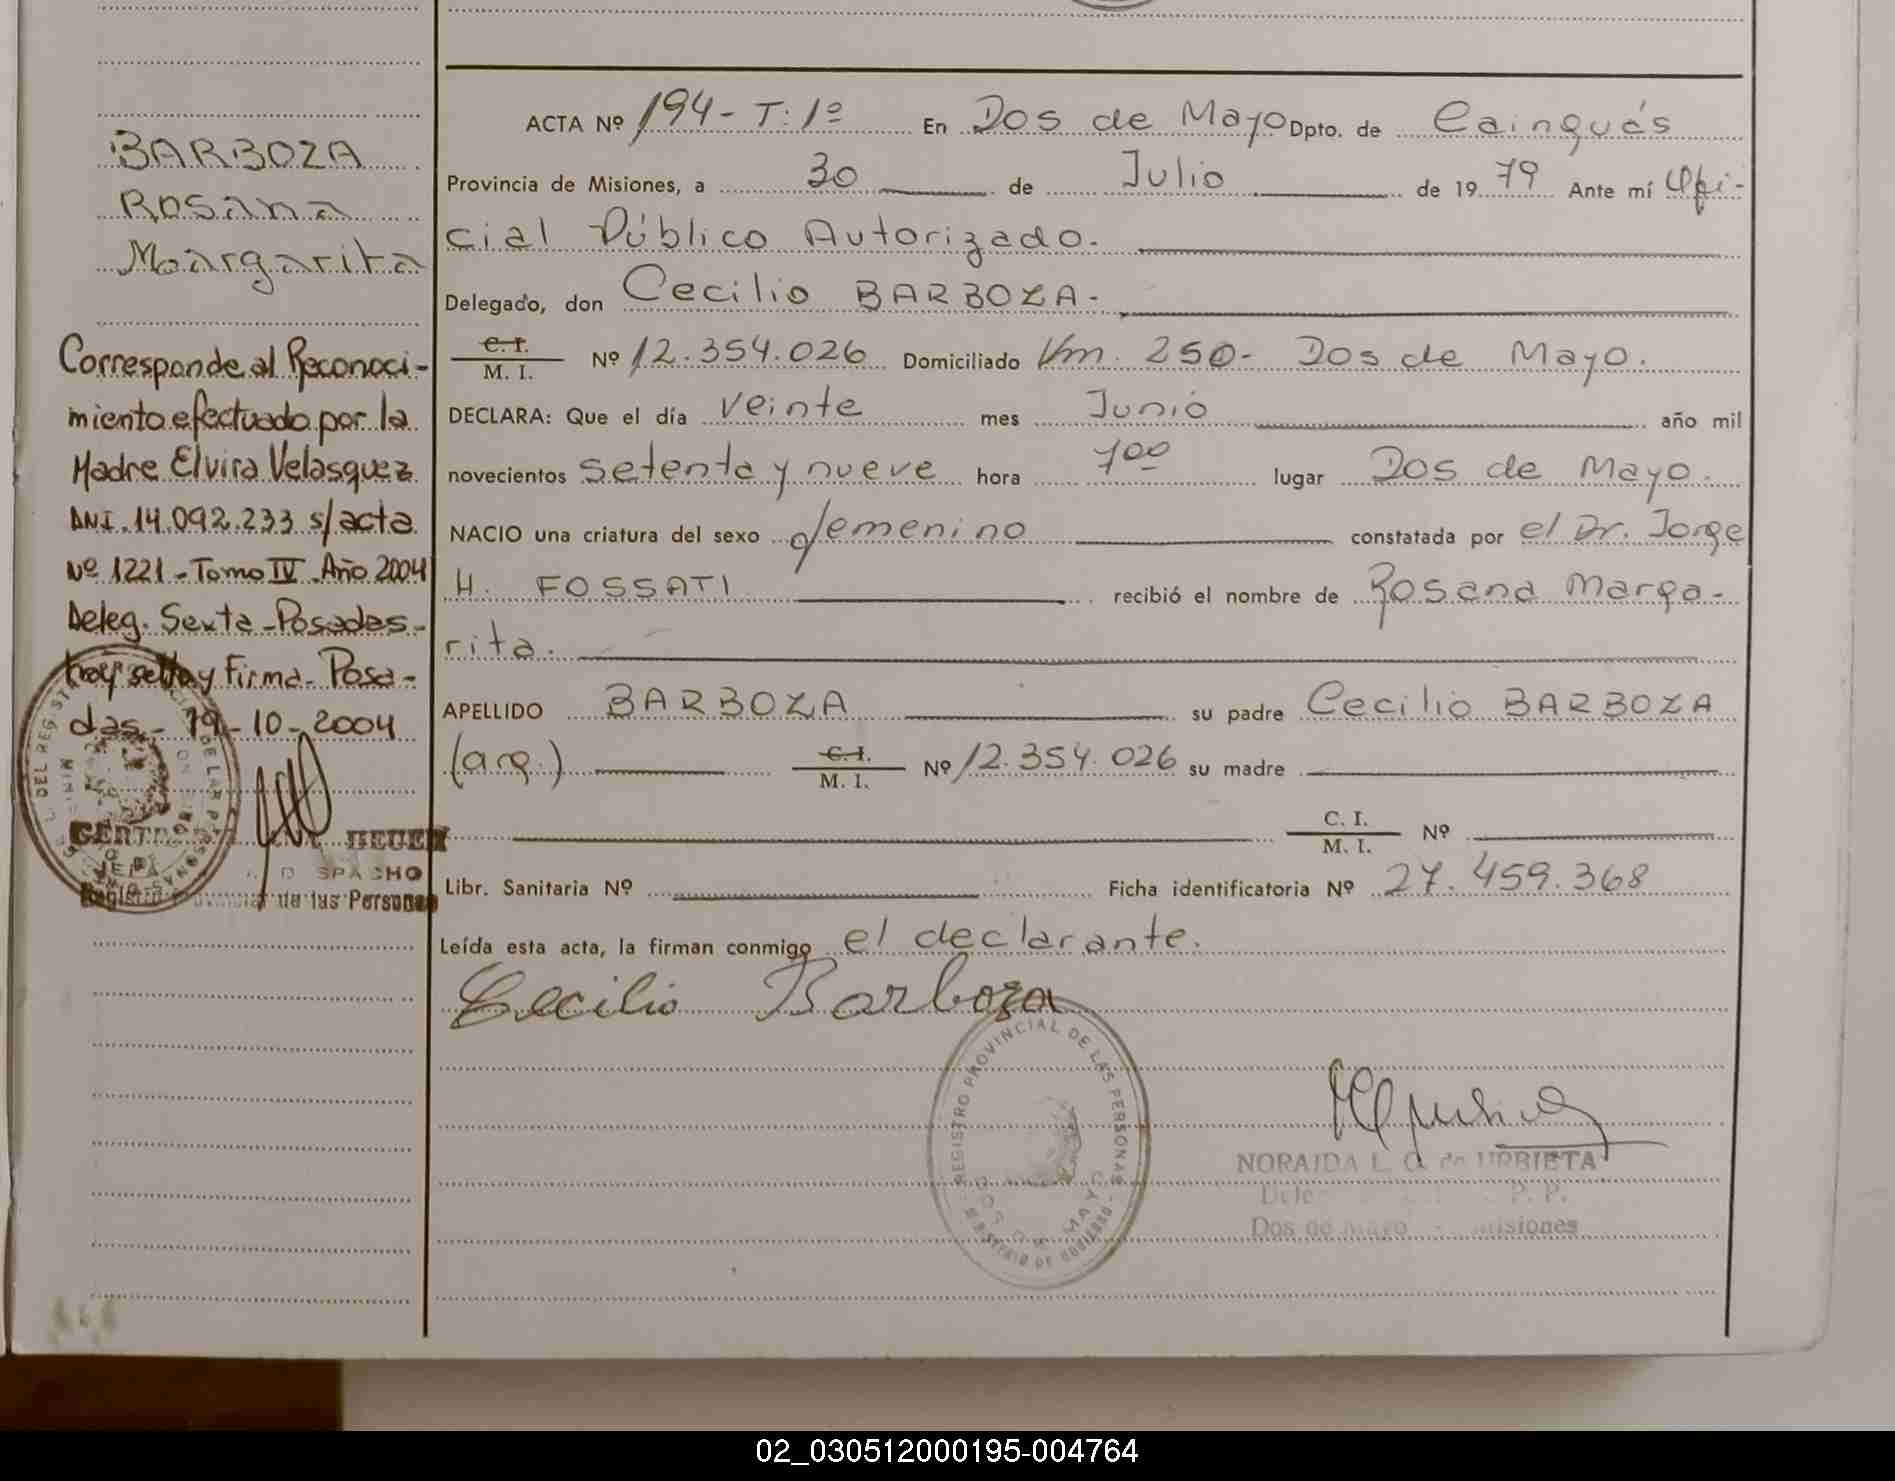 BARBOZA
ROSANA
Margarita
Corresponde al Reconoci-
miento efectuado por la
Madre Elvira Velasquez
DNI. 14.092.233 s/acta
Nº 1221 - Tomo IV. Año 2004
Deleg. Sexta - Posadas -
sello y Firma. Posa-
das - 19-10-2004
SPACHO
de las Personas
ACTA Nº 194 - T: 1º En Dos de Mayo Dpto. de Cainguás
Provincia de Misiones, a 30 de Julio de 1979 Ante mí Ofi-
cial Público Autorizado.
Delegado, don Cecilio BARBOZA.
C. I.
M. I. Nº 12.354.026 Domiciliado Km. 250 - Dos de Mayo.
DECLARA: Que el día veinte mes Junio año mil
novecientos setenta y nueve hora 7 00 lugar Dos de Mayo.
NACIO una criatura del sexo femenino constatada por el Dr. Jorge
H. FOSSATI recibió el nombre de Rosana Marga-
rita.
APELLIDO BARBOZA su padre Cecilio BARBOZA
(arg.) C. I.
M. I. Nº 12.354.026 su madre
C. I.
M. I. Nº
Libr. Sanitaria Nº Ficha identificatoria Nº 27.459.368
Leída esta acta, la firman conmigo el declarante.
Cecilio Barboza
REGISTRO PROVINCIAL DE LAS PERSONAS
DOS DE MAYO
MINISTERIO DE GOBIERNO
NORAIDA L. G. de URBIETA
P. P.
Dos de Mayo - Misiones
02_030512000195-004764